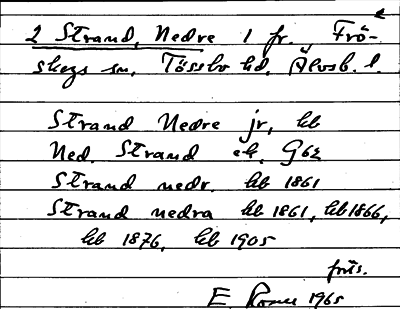 2 Strand, Nedre 1 fr. Frö-
skogs sn, Tössbo hd, Älvsb. l.
Strand Nedre jr, kb
Ned. Strand ek, G62
Strand nedr. kb 1861
Strand nedra kb 1861, kb 1866,
kb 1876, kb 1905
forts.
E 1965